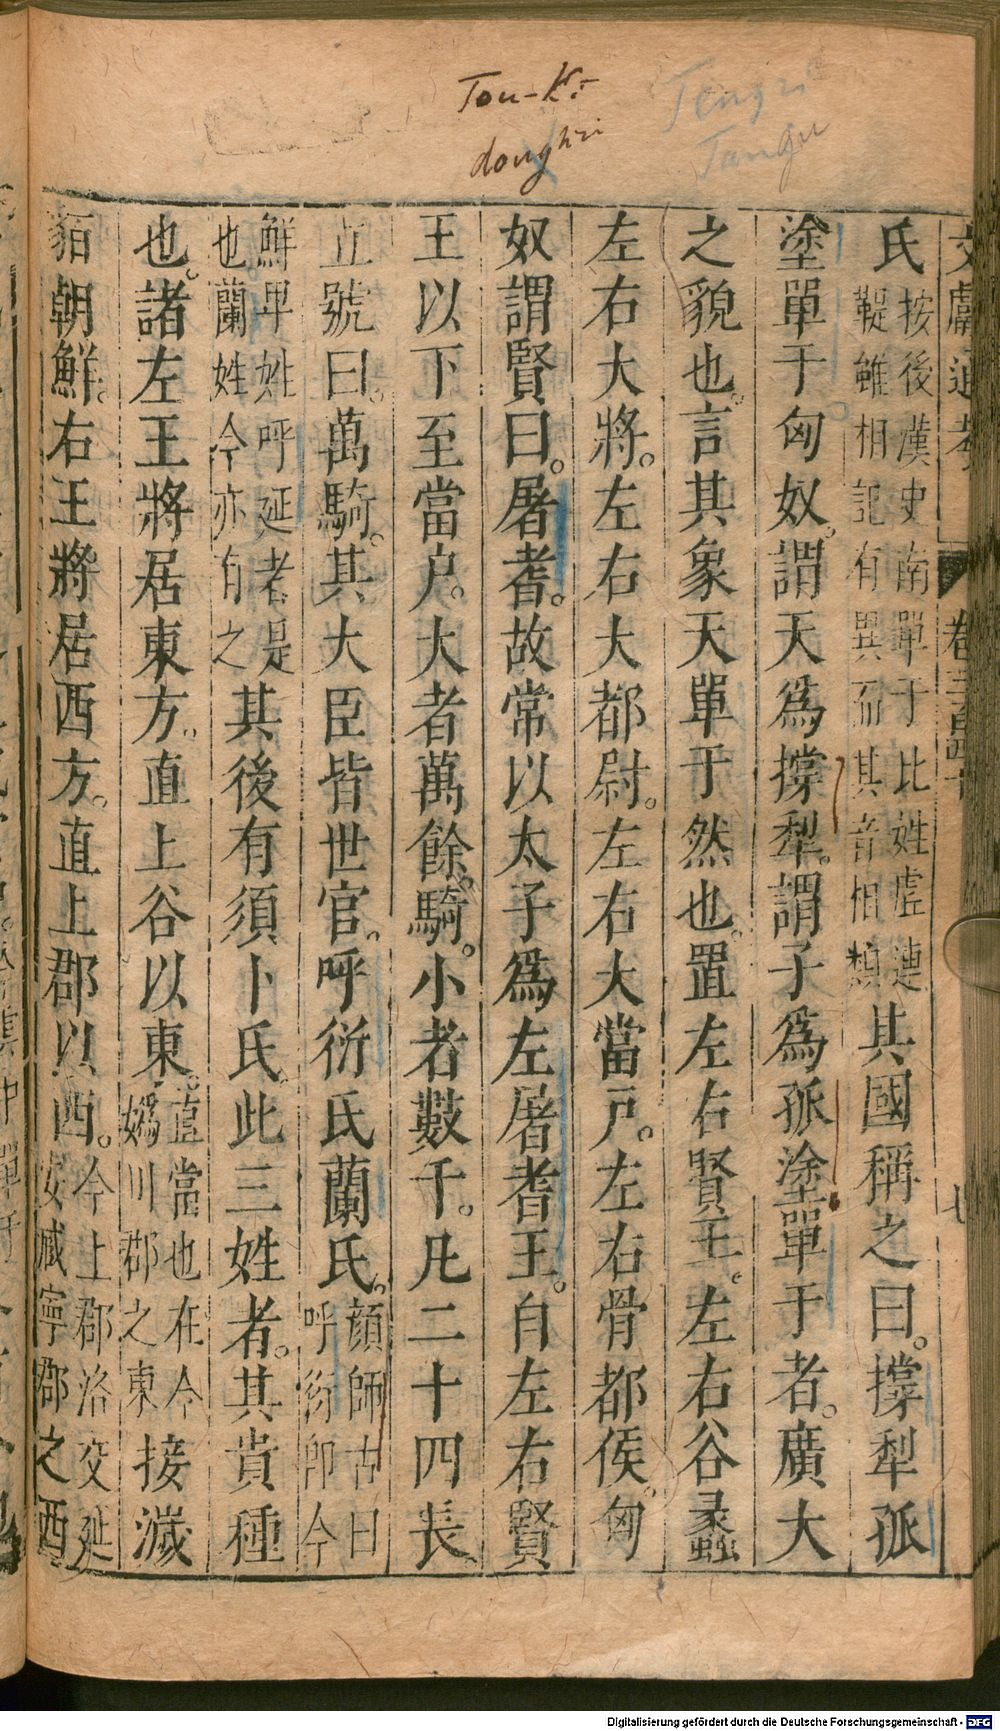 Tou-Ki
donghri
Tengri
Tangu
文獻通考 卷三百四十 七
氏 按後漢史南單于比姓虛連
鞮雖相記有異而其音相類 其國稱之曰。撐犁孤
塗單于匈奴。謂天爲撐犁。謂子爲孤塗單于者。廣大
之貌也。言其象天單于然也。置左右賢王。左右谷蠡
左右大將。左右大都尉。左右大當戸。左右骨都侯。匈
奴謂賢曰。屠耆。故常以太子爲左屠耆王。自左右賢
王以下至當戸。大者萬餘騎。小者數千。凡二十四長。
立號曰。萬騎。其大臣皆世官。呼衍氏蘭氏。 顔師古曰
呼衍卽今
鮮卑姓呼延者是
也蘭姓今亦有之 其後有須卜氏。此三姓者。其貴種
也。諸左王將居東方。直上谷以東。 直當也在今
嬀川郡之東 接濊
貊朝鮮。右王將居西方。直上郡以西。 今上郡洛交延
安咸寧郡之西
Digitalisierung gefördert durch die Deutsche Forschungsgemeinschaft - DFG